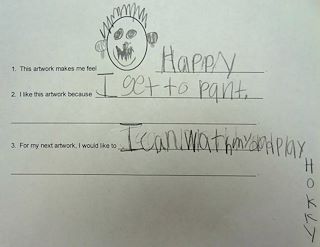 1. This artwork makes me feel Happy
2. I like this artwork because I get to pant.
3. For my next artwork, I would like to I can and play
HOKEY